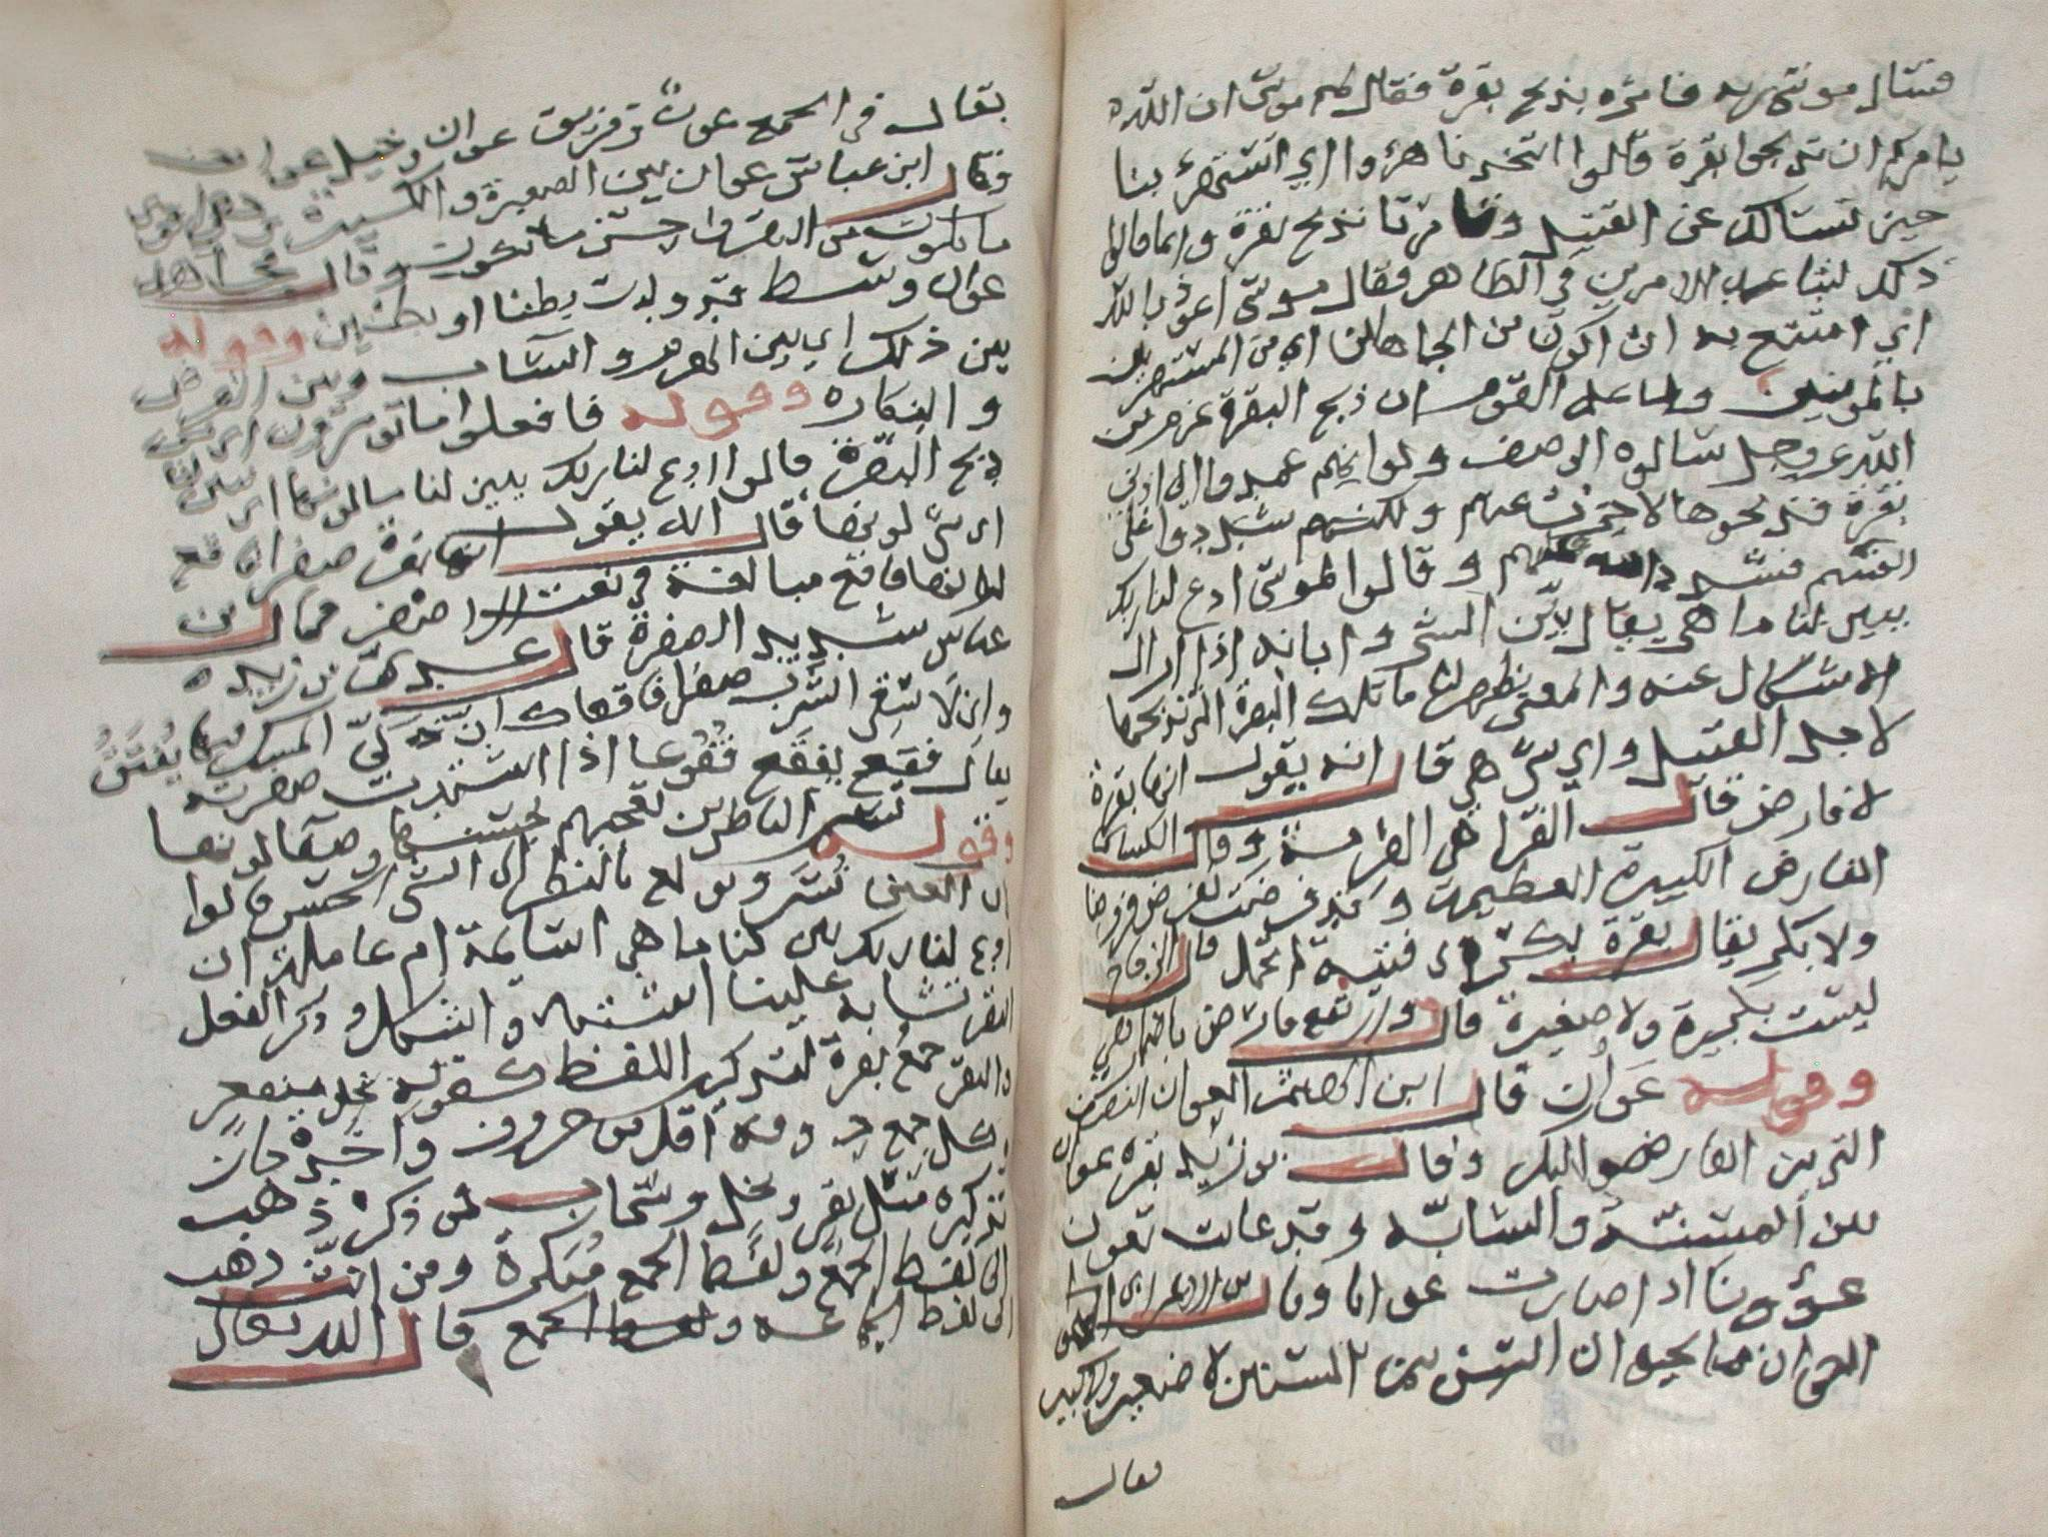 فسال موسى ربه فامره بذبح بقرة فقال لهم موسى ان الله
يامركم ان تذبحوا بقرة قالوا اتتخذنا هزؤا اي اتستهزئ بنا
حين نسالك عن القتيل وتامرنا بذبح بقرة وانما قالوا
ذلك لتباعد الامرين في الظاهر فقال موسى اعوذ بالله
اي امتنع به ان اكون من الجاهلين اي من المستهزيين
بالمومنين ولما علم القوم ان ذبح البقرة عزم من
الله عز وجل سالوه الوصف ولو انهم عمدوا الى ادنى
بقرة فذبحوها لاجزت عنهم ولكنهم شددوا على
انفسهم فشدد الله عليهم وقالوا لموسى ادع لنا ربك
يبين لنا ما هي يقال بين الشي وابانه اذا ازال
الاشكال عنه والمعنى يظهر لنا ما تلك البقرة التي نذبحها
لاجل القتيل واي شي هي قال انه يقول انها بقرة
لا فارض قال الفرا هي الهرمة وقال الكسائي
الفارض الكبيرة العظيمة وقد فرضت تفرض فروضا
ولا بكر يقال بقرة بكر اي فتية لم تحمل قال الزجاج
ليست بكبيرة ولا صغيرة قال وارتفع فارض باضمار هي
وقوله عوان قال ابن الهيثم العوان النصف
التي بين الفارض والبكر وقال بن زيد بقرة عوان
بين المسنة والشابة وقد عانت تعون
عؤونا اذا صارت عوانا وقال بن الاعرابي
العوان من الحيوان السن بين السنين لا صغير ولا كبير
يقال
يقال في الجمع عون وفرس عوان وخيل عون
وقال ابن عباس عوان بين الصغيرة والكبيرة وهي اقوى
ما يكون من البقر واحسن ما يكون وقال مجاهد
عوان وسط قد ولدت بطنا او بطنين وقوله
بين ذلك اي بين الهرم والشاب وبين الفرض
والبكاره وقوله فافعلوا ما تومرون اي من
ذبح البقرة قالوا ادع لنا ربك يبين لنا ما لونها اي يبين لنا
اي شي لونها قال انه يقول انها بقرة صفرا فاقع
لونها فاقع مبالغة في نعت الاصفر قال بن
عباس شديد الصفرة قال عدي بن زيد
واني لاسقى الشرب صفرا فاقعا كان ذكي المسك فيها يفتق
يقال فقع يفقع فقوعا اذا اشتدت صفرته
وقوله تسر الناظرين تعجبهم بحسنها وصفا لونها
لان العين تسر وتولع بالنظر الى الشي الحسن قالوا
ادع لنا ربك يبين لنا ما هي اسايمة ام عاملة ان
البقر تشابه علينا اشتبه واشكل وذكر الفعل
والبقر جمع بقرة لتذكير اللفظ كقوله نخل منقعر
وكل جمع حروفه اقل من حروف واحده جاز
تذكيره مثل بقر ونخل وسحاب فمن ذكر ذهب
الى لفظ الجمع ولفظ الجمع مذكرة ومن انث ذهب
الى لفظ الجماعه ولفظ الجمع قال الله تعالى